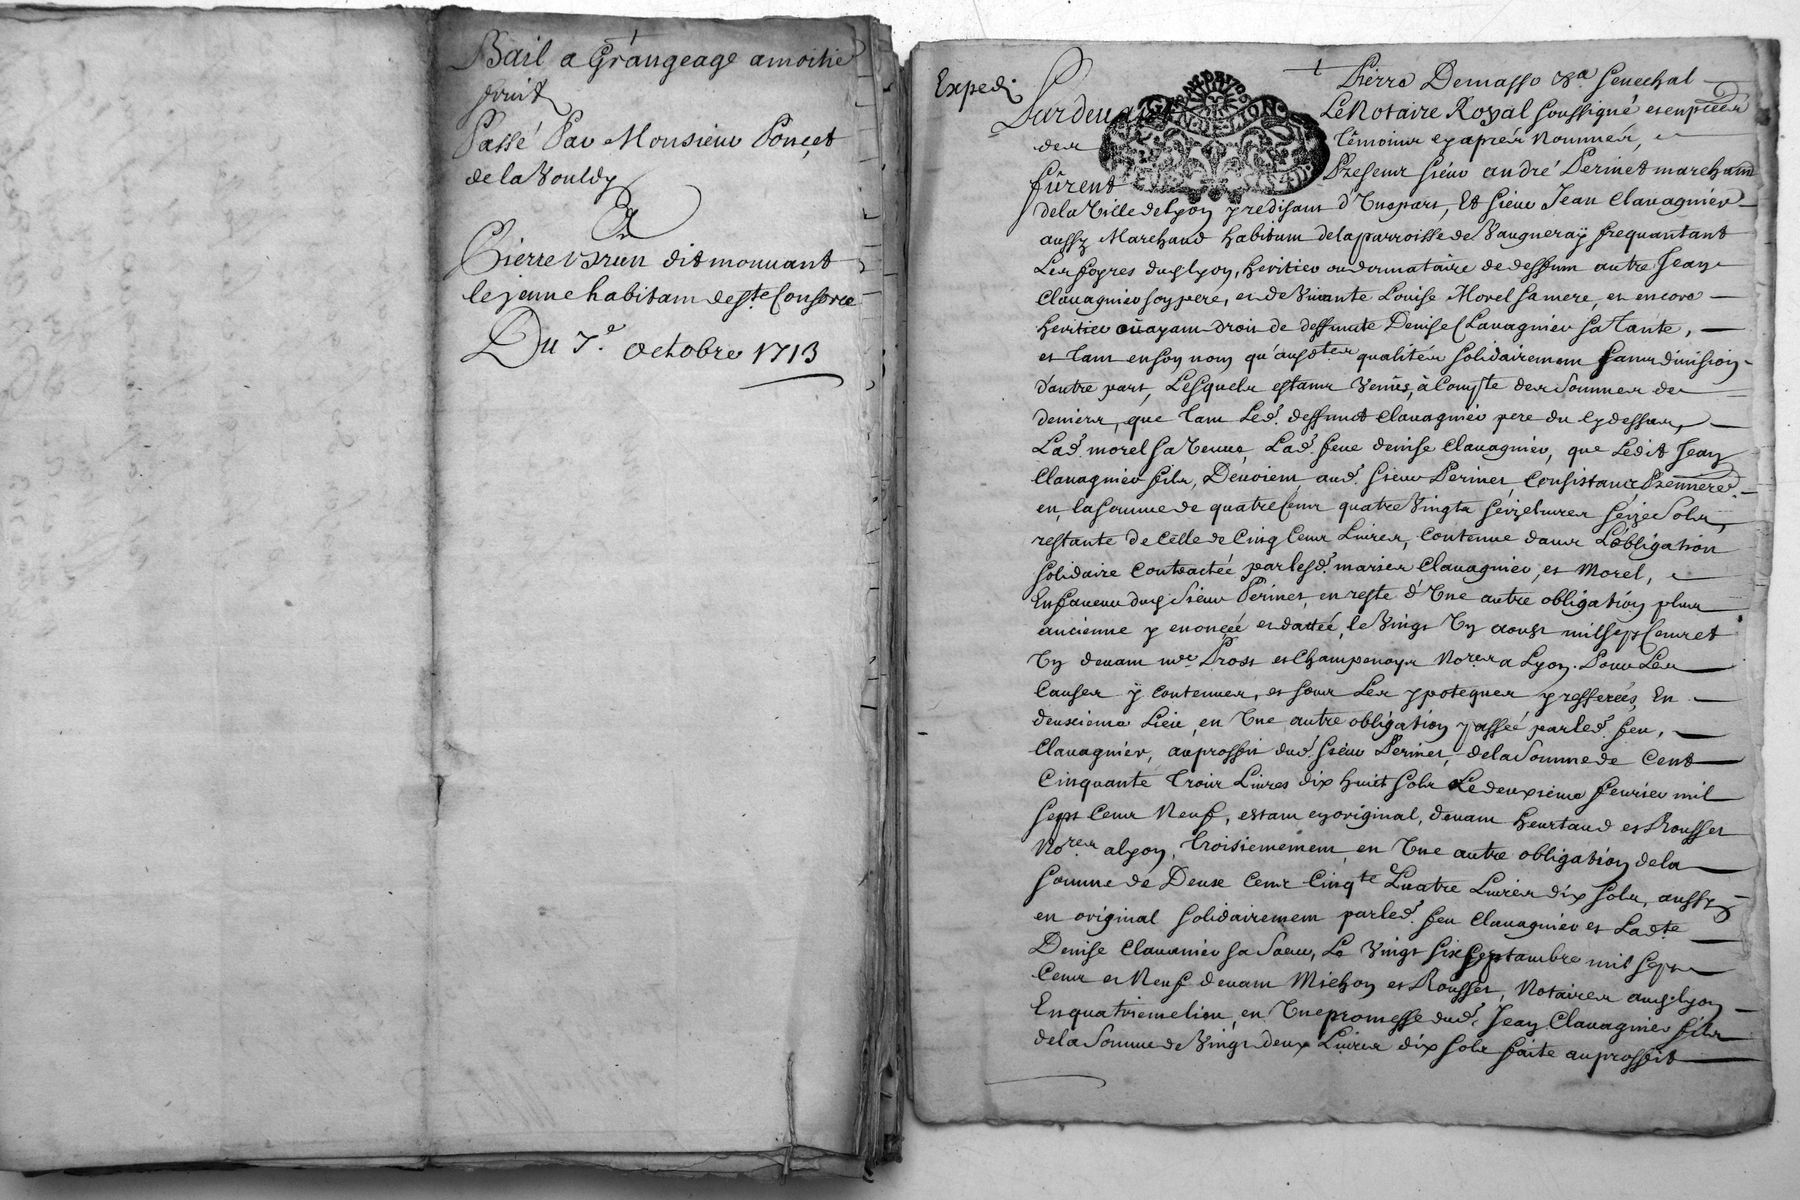 Bail a Grangeage amoitié
fruit
Passé Par Monsieur Ponçet
de la Vouldy
A
Pierre Brun dit mouuant
le jeune habitant de Ste Consorce
Du 7e octobre 1713
Expedié
Pierre Demasso Sal Senechal
Pardeuant Le Notaire Royal soussigné et en presence
des Témoins cy aprés Nommés,
fûrent Presens sieur andré Perinet marchand
de la Ville de Lyon y redisant d'Vne part, Et sieur Jean Clauagnier
aussy Marchand habitant de la parroisse de Vaugneraÿ frequantant
Les foyres dud Lyon, heritier ou donnataire de deffunt autre Jean
Clauagnier son pere, et de Viuante Louise Morel sa mere, et encore
heritier ou ayant droit de deffunte Denise Clauagnier sa Tante,
et Tant en son nom qu'ausdtes qualités solidairement sans diuision
d'autre part, Lesquels estant Venus, à Compte des Sommes de
deniers, que Tant Led. deffunct Clauagnier pere du cy dessus,
Lad. morel sa Veuue, Lad. feue denise Clauagnier, que Ledit Jean
Clauagnier fils, Deuoient aud. sieur Perinet, Consistant Premieremt
en la somme de quatre Cent quatre Vingts seize liures seize Sols,
restante de Celle de Cinq Cent Liures, Contenue dans L'obligation
solidaire Contractée par lesd. maries Clauagnier et Morel,
En faueur dud Sieur Perinet, en reste d'Vne autre obligation plus
ancienne y enonçée et dattée, le Vingt Vn aoust mil sept Cent et
Vn deuant mre Pross et Champenoys Nores a Lyon. Pour Les
Causes ÿ contenues, et sous Les ypoteques y reserées, En
deuxieme Lieu, en Vne autre obligation passée par led. feu,
Clauagnier, au proffit dud. sieur Perinet, de la Somme de Cent
Cinquante Trois Liures dix huit sols Le deuxsieme feurier mil
sept Cent Neuf, estant en original, deuant heurtaud et Rousset
Nores a Lyon, Troisiemement en Vne autre obligation de la
somme de Deux Cent Cinqte Quatre Liures dix sols, aussy
en original solidairement par led. feu Clauagnier et Ladte
Denise Clauanier sa Soeur, Le Vingt six septambre mil sept
Cent et Neuf deuant Michon et Rousset, Notaires aud. Lyon
En quatrieme lieu, en Vne promesse dud. Jean Clauagnier fils
de la Somme de Vingt deux Liures dix sols faite au proffit